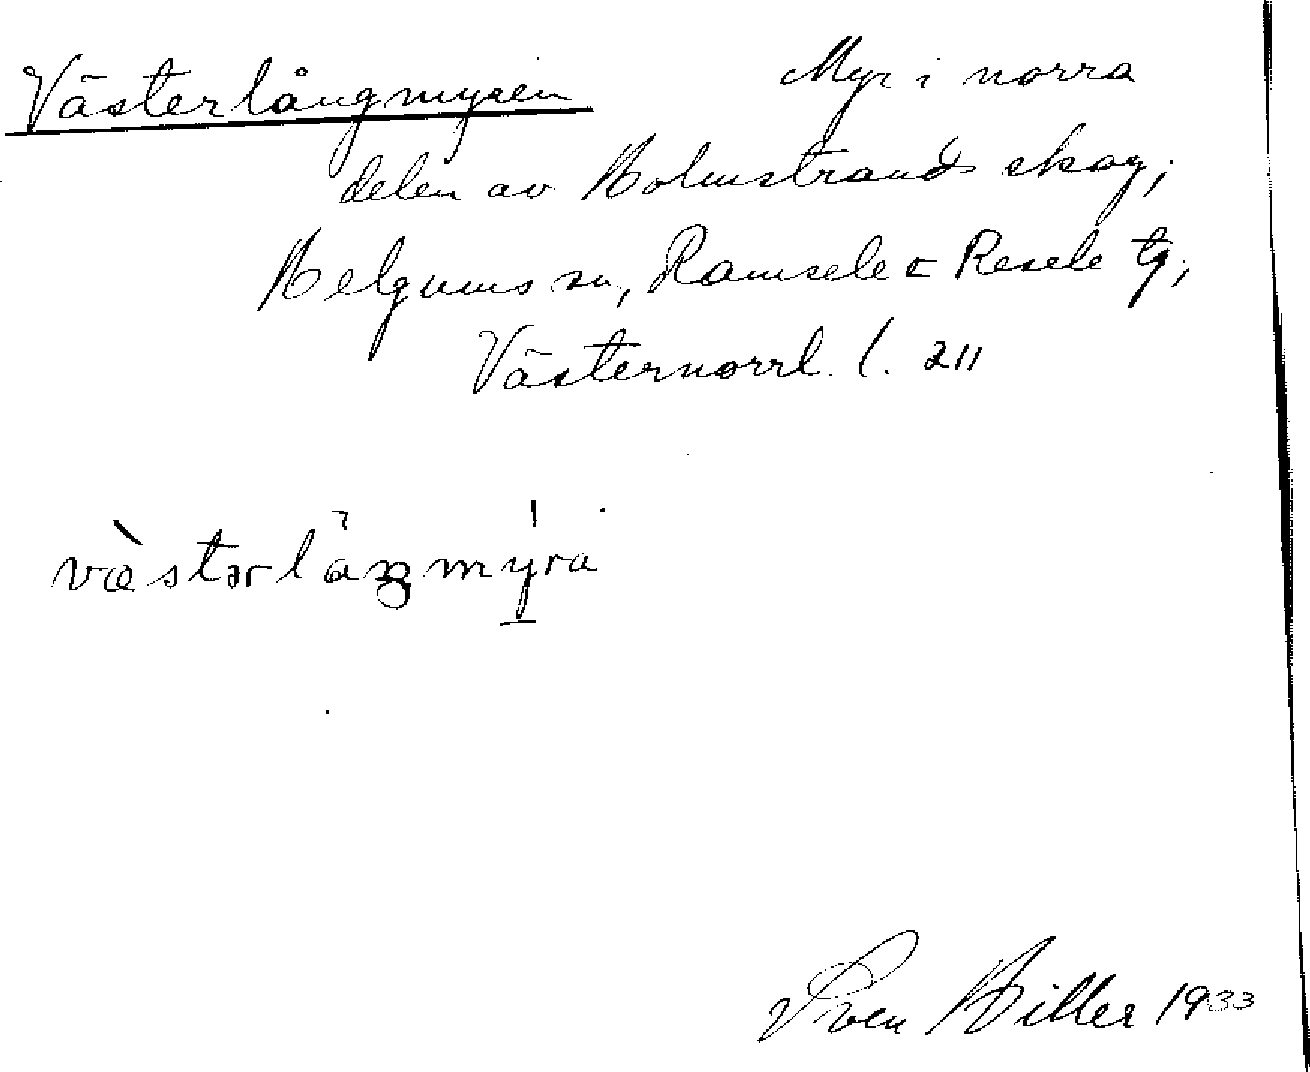 Västerlångmyren Myr i norra
delen av Holmstrands skog;
Helgums sn, Ramsele o Resele tg;
Västernorrl. l. 211
Sven Hiller 1933